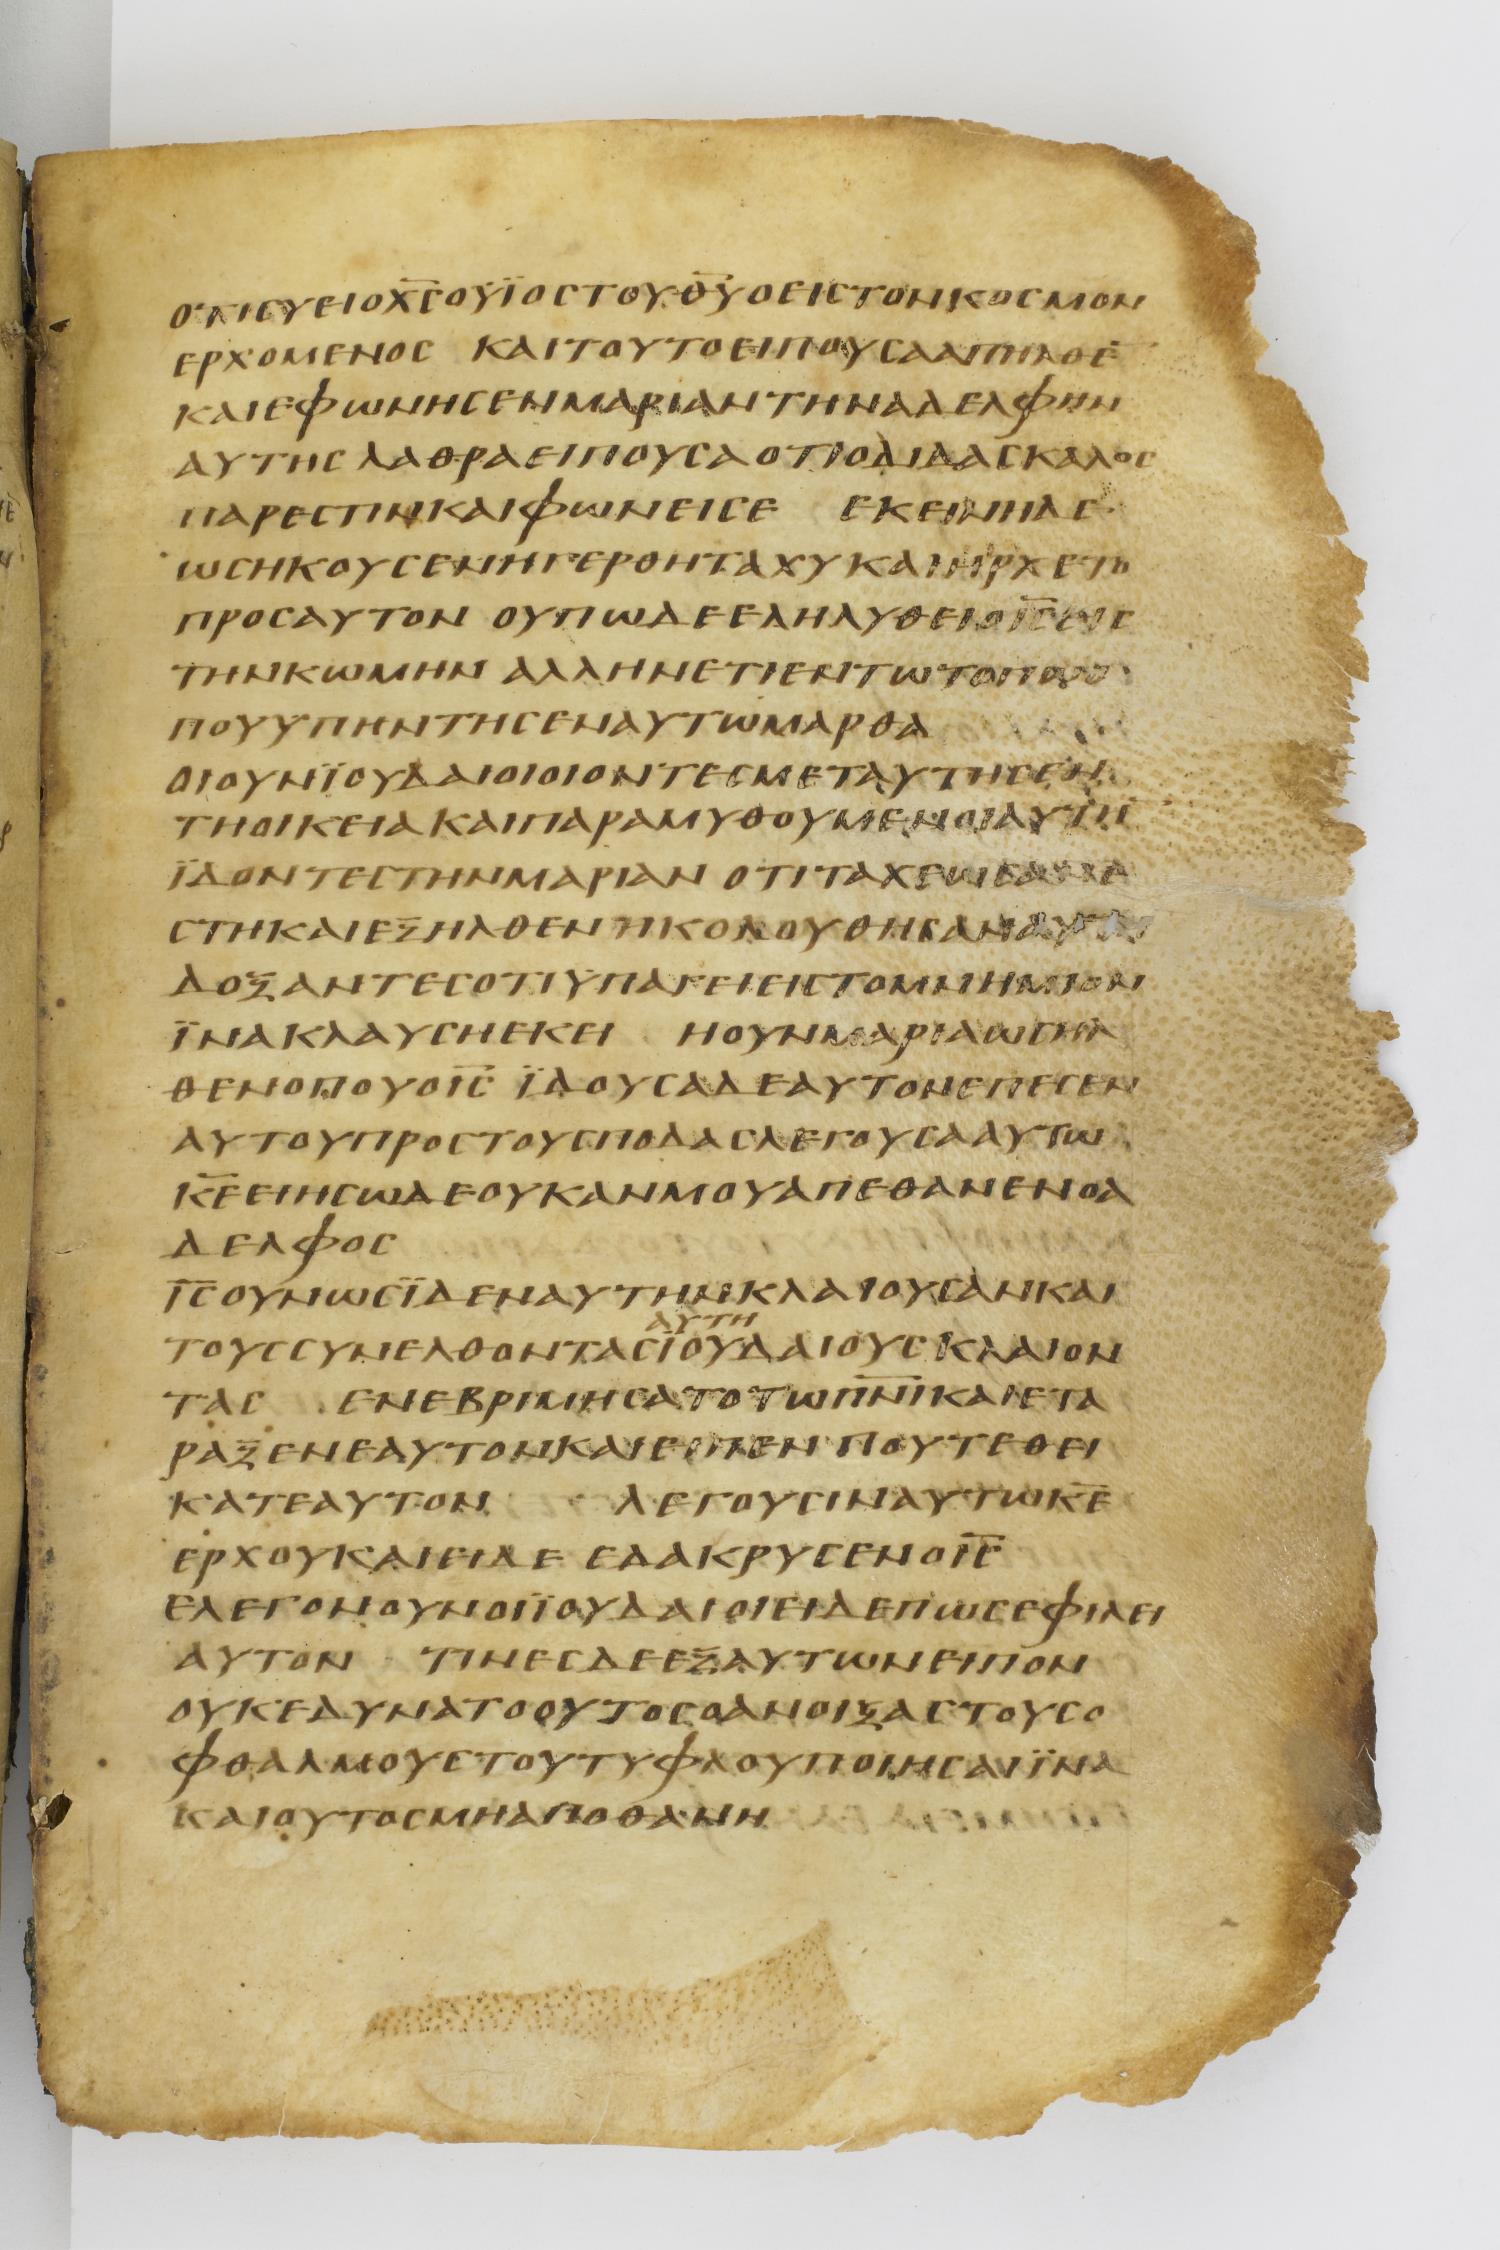 ΟΤΙ ϹΥ ΕΙ Ο Χ̅Ϲ̅ Ο ΥΪΟϹ ΤΟΥ Θ̅Υ̅ Ο ΕΙϹ ΤΟΝ ΚΟϹΜΟΝ
ΕΡΧΟΜΕΝΟϹ ΚΑΙ ΤΟΥΤΟ ΕΙΠΟΥϹΑ ΑΠΗΛΘΕ̅
ΚΑΙ ΕΦΩΝΗϹΕΝ ΜΑΡΙΑΝ ΤΗΝ ΑΔΕΛΦΗΝ
ΑΥΤΗϹ ΛΑΘΡΑ ΕΙΠΟΥϹΑ ΟΤΙ Ο ΔΙΔΑϹΚΑΛΟϹ
ΠΑΡΕϹΤΙΝ ΚΑΙ ΦΩΝΕΙ ϹΕ ΕΚΕΙΝΗ ΔΕ
ΩϹ ΗΚΟΥϹΕΝ ΗΓΕΡΘΗ ΤΑΧΥ ΚΑΙ ΗΡΧΕΤΟ
ΠΡΟϹ ΑΥΤΟΝ ΟΥΠΩ ΔΕ ΕΛΗΛΥΘΕΙ Ο Ι̅Ϲ̅ ΕΙϹ
ΤΗΝ ΚΩΜΗΝ ΑΛΛ ΗΝ ΕΤΙ ΕΝ ΤΩ ΤΟΠΩ Ο
ΠΟΥ ΥΠΗΝΤΗϹΕΝ ΑΥΤΩ ΜΑΡΘΑ
ΟΙ ΟΥΝ ΪΟΥΔΑΙΟΙ ΟΙ ΟΝΤΕϹ ΜΕΤ ΑΥΤΗϹ ΕΝ
ΤΗ ΟΙΚΕΙΑ ΚΑΙ ΠΑΡΑΜΥΘΟΥΜΕΝΟΙ ΑΥΤΗ̅
ΪΔΟΝΤΕϹ ΤΗΝ ΜΑΡΙΑΝ ΟΤΙ ΤΑΧΕΩϹ ΑΝΕ
ϹΤΗ ΚΑΙ ΕΞΗΛΘΕΝ ΗΚΟΛΟΥΘΗϹΑΝ ΑΥΤΗ
ΔΟΞΑΝΤΕϹ ΟΤΙ ΫΠΑΓΕΙ ΕΙϹ ΤΟ ΜΝΗΜΙΟΝ
ΪΝΑ ΚΛΑΥϹΗ ΕΚΕΙ Η ΟΥΝ ΜΑΡΙΑ ΩϹ ΗΛ
ΘΕΝ ΟΠΟΥ Ο Ι̅Ϲ̅ ΪΔΟΥϹΑ ΔΕ ΑΥΤΟΝ ΕΠΕϹΕΝ
ΑΥΤΟΥ ΠΡΟϹ ΤΟΥϹ ΠΟΔΑϹ ΛΕΓΟΥϹΑ ΑΥΤΩ
Κ̅Ε̅ ΕΙ ΗϹ ΩΔΕ ΟΥΚ ΑΝ ΜΟΥ ΑΠΕΘΑΝΕΝ Ο Α
ΔΕΛΦΟϹ
Ι̅Ϲ̅ ΟΥΝ ΩϹ ΪΔΕΝ ΑΥΤΗΝ ΚΛΑΙΟΥϹΑΝ ΚΑΙ
ΑΥΤΗ
ΤΟΥϹ ϹΥΝΕΛΘΟΝΤΑϹ ΪΟΥΔΑΙΟΥϹ ΚΛΑΙΟΝ
ΤΑϹ ΕΝΕΒΡΙΜΗϹΑΤΟ ΤΩ Π̅Ν̅Ι̅ ΚΑΙ ΕΤΑ
ΡΑΞΕΝ ΕΑΥΤΟΝ ΚΑΙ ΕΙΠΕΝ ΠΟΥ ΤΕΘΕΙ
ΚΑΤΕ ΑΥΤΟΝ ΛΕΓΟΥϹΙΝ ΑΥΤΩ Κ̅Ε̅
ΕΡΧΟΥ ΚΑΙ ΕΙΔΕ ΕΔΑΚΡΥϹΕΝ Ο Ι̅Ϲ̅
ΕΛΕΓΟΝ ΟΥΝ ΟΙ ΪΟΥΔΑΙΟΙ ΕΙΔΕ ΠΩϹ ΕΦΙΛΕΙ
ΑΥΤΟΝ ΤΙΝΕϹ ΔΕ ΕΞ ΑΥΤΩΝ ΕΙΠΟΝ
ΟΥΚ ΕΔΥΝΑΤΟ ΟΥΤΟϹ Ο ΑΝΟΙΞΑϹ ΤΟΥϹ Ο
ΦΘΑΛΜΟΥϹ ΤΟΥ ΤΥΦΛΟΥ ΠΟΙΗϹΑΙ ΪΝΑ
ΚΑΙ ΟΥΤΟϹ ΜΗ ΑΠΟΘΑΝΗ